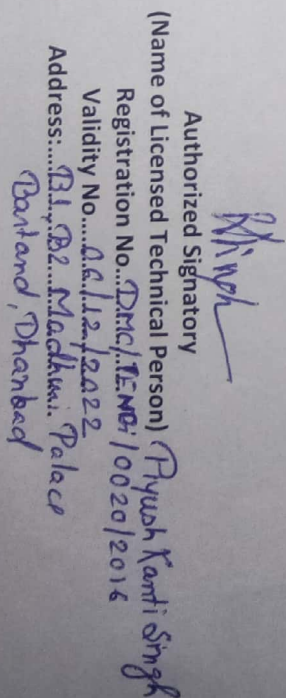 PKSingh
Authorized Signatory
(Name of Licensed Technical Person) Piyush Kanti Singh
Registration No...DMC/TENG/0020/2016
Validity No....06/12/2022
Address:....B1, B2 Madhuri Palace
Bartand, Dhanbad